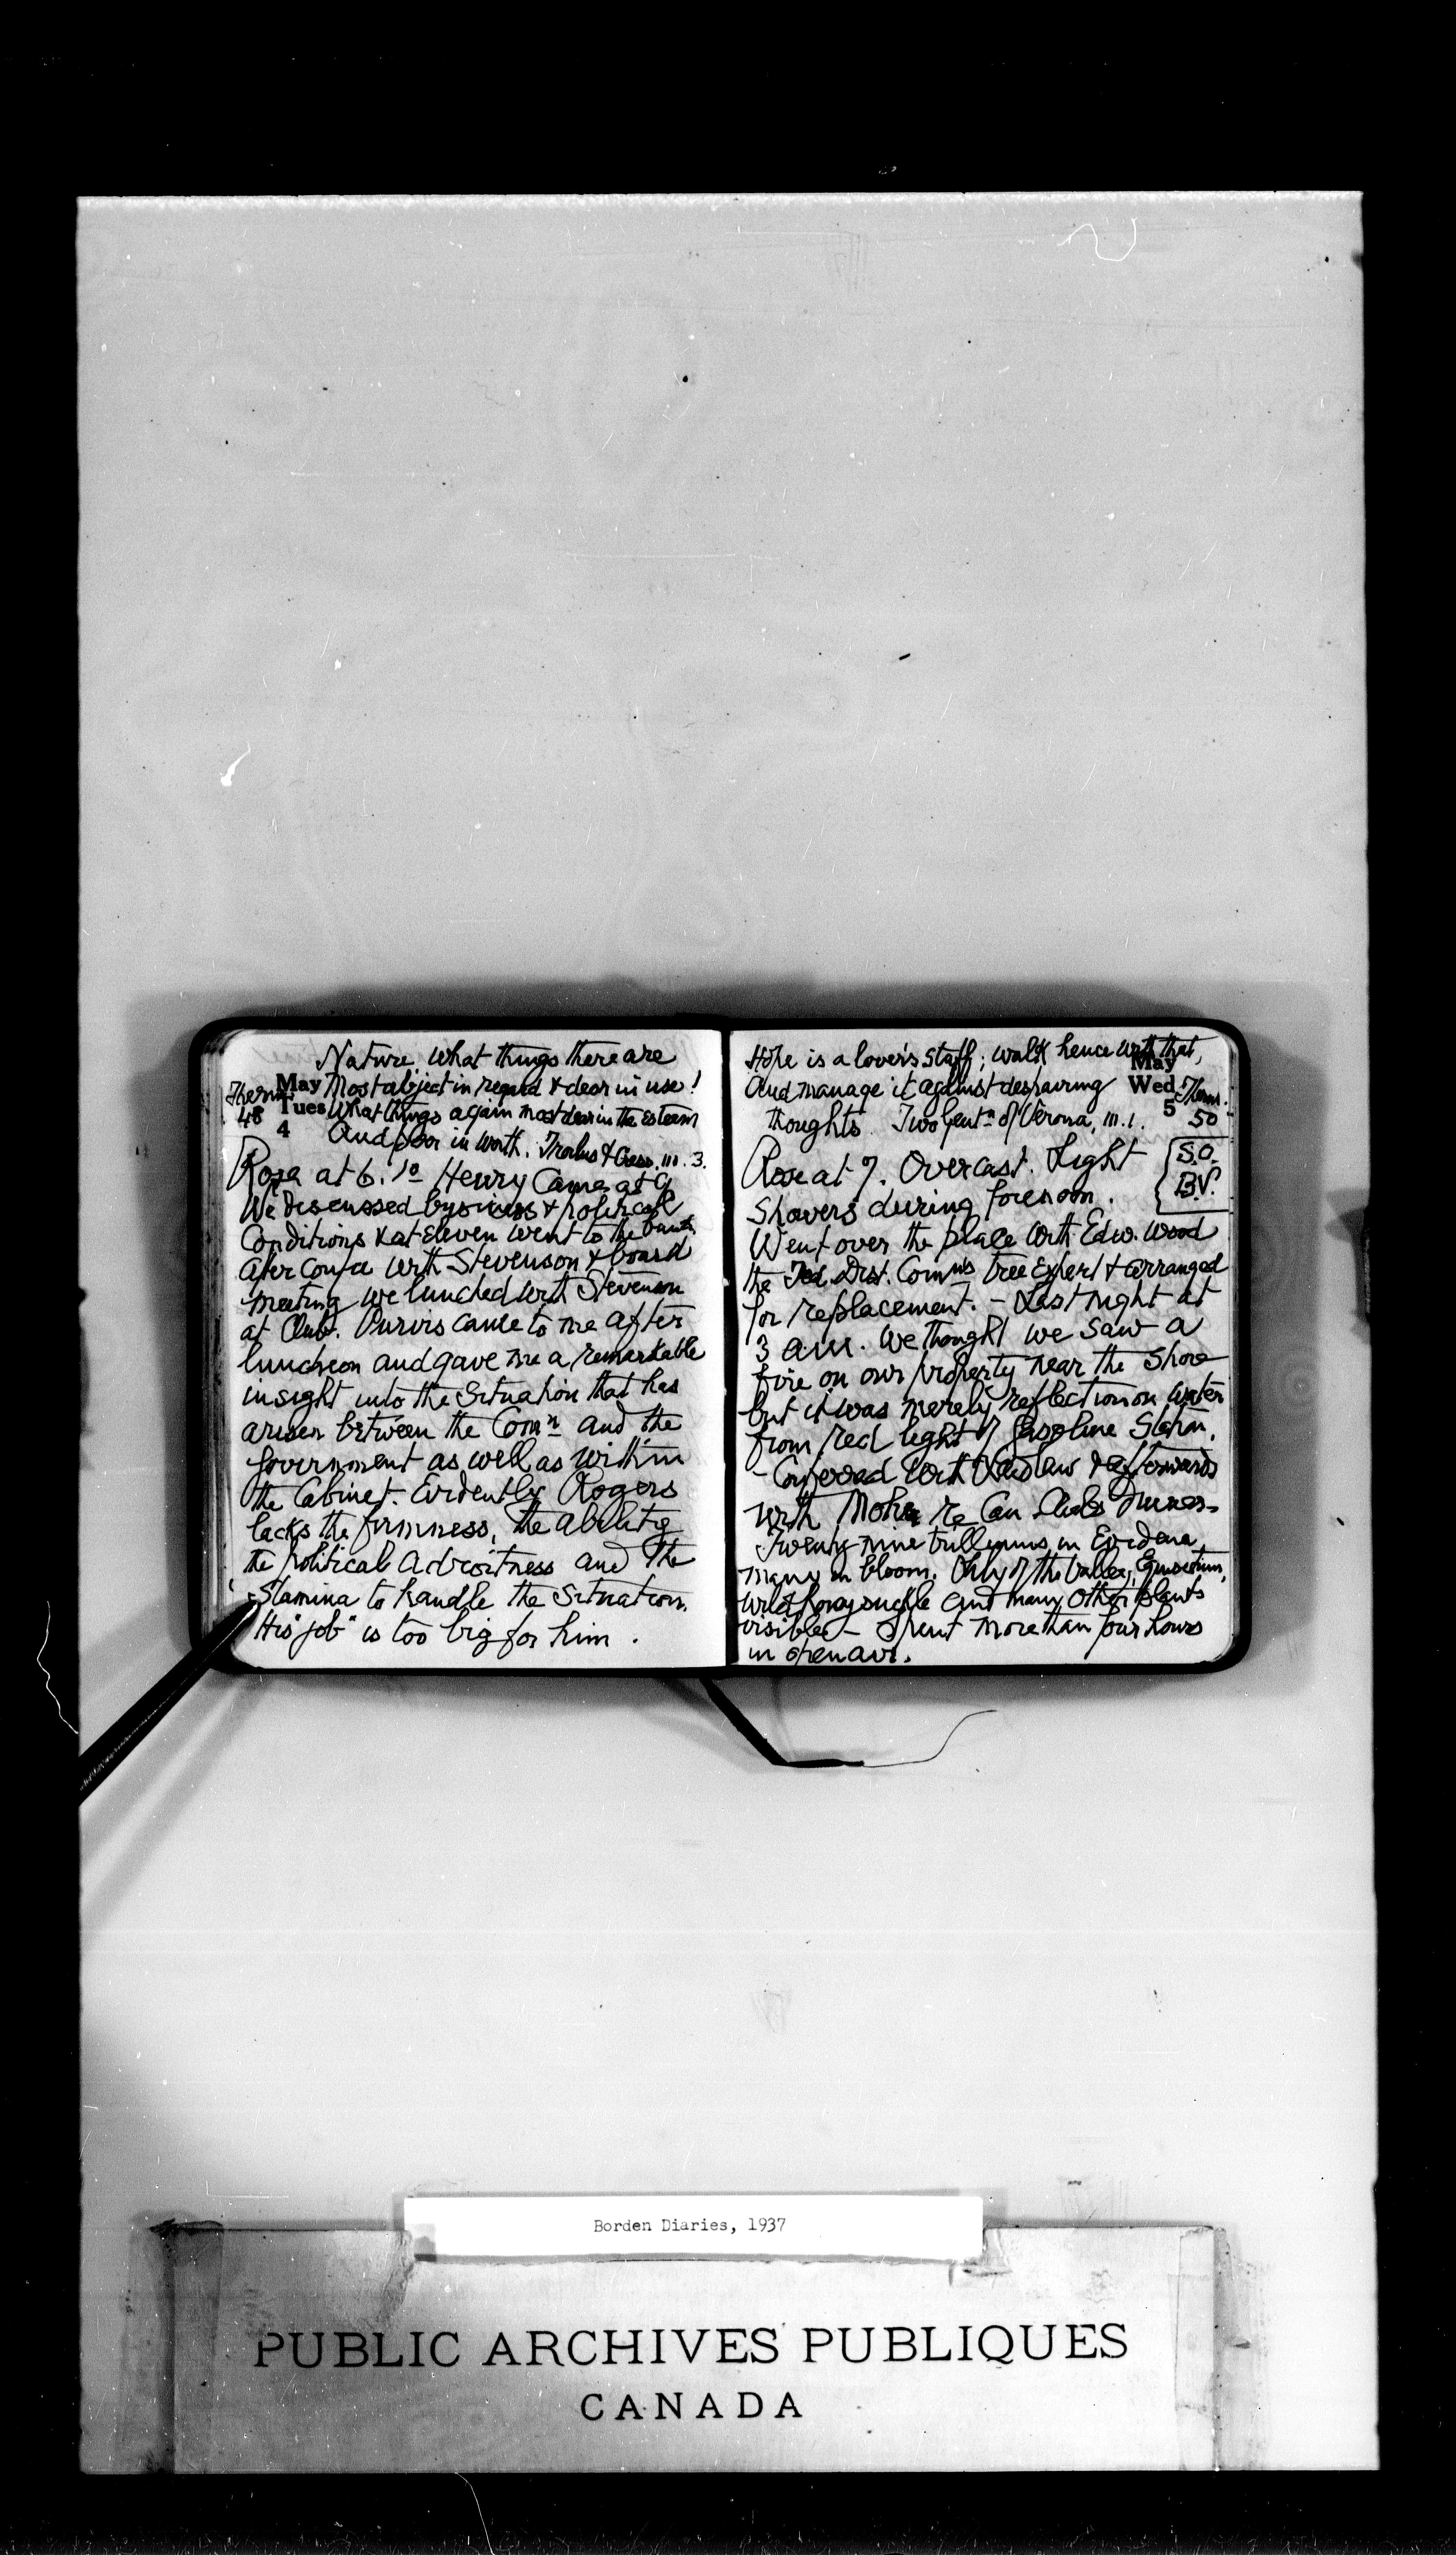 Nature, what things there are
Most abject in regard & dear in use!
What things again most dear in the esteem
And poor in worth. Troilus & Cress. III. 3.
Therm.
48
May
Tues
4
Rose at 6.10 Henry Came at 9
We discussed business & political
Conditions & at Eleven went to the bank
after confce with Stevenson & board
meeting we lunched with Stevenson
at Club. Purvis came to me after
luncheon and gave me a remarkable
insight into the Situation that has
arisen between the Comn and the
Government as well as within
the Cabinet. Evidently Rogers
lacks the firmness, the ability
the political adroitness and the
Stamina to handle the Situation.
His "job" is too big for him.
Hope is a lover's staff; walk hence with that,
And manage it against despairing
thoughts. Two Gentn of Verona, III. 1.
May
Wed
5
Therm.
50
Rose at 7. Overcast. Light
Showers during forenoon.
S.O.
B.V.
Went over the place with Edw. Wood
the Fed. Dist. Comns tree Expert & arranged
for replacement. - Last night at
3 a.m. we thought we saw a
fire on our property near the Shore
but it was merely reflection on water
from red light of gasoline Station.
- Conferred with Laidlaw & afterwards
with re Can Clubs Dinner -
Twenty nine trilliums in Evidence
many in bloom. Lily of the Valley,
wild honeysuckle and many other plants
visible - Spent more than four hours
in open air.
Borden Diaries, 1937
PUBLIC ARCHIVES PUBLIQUES
CANADA